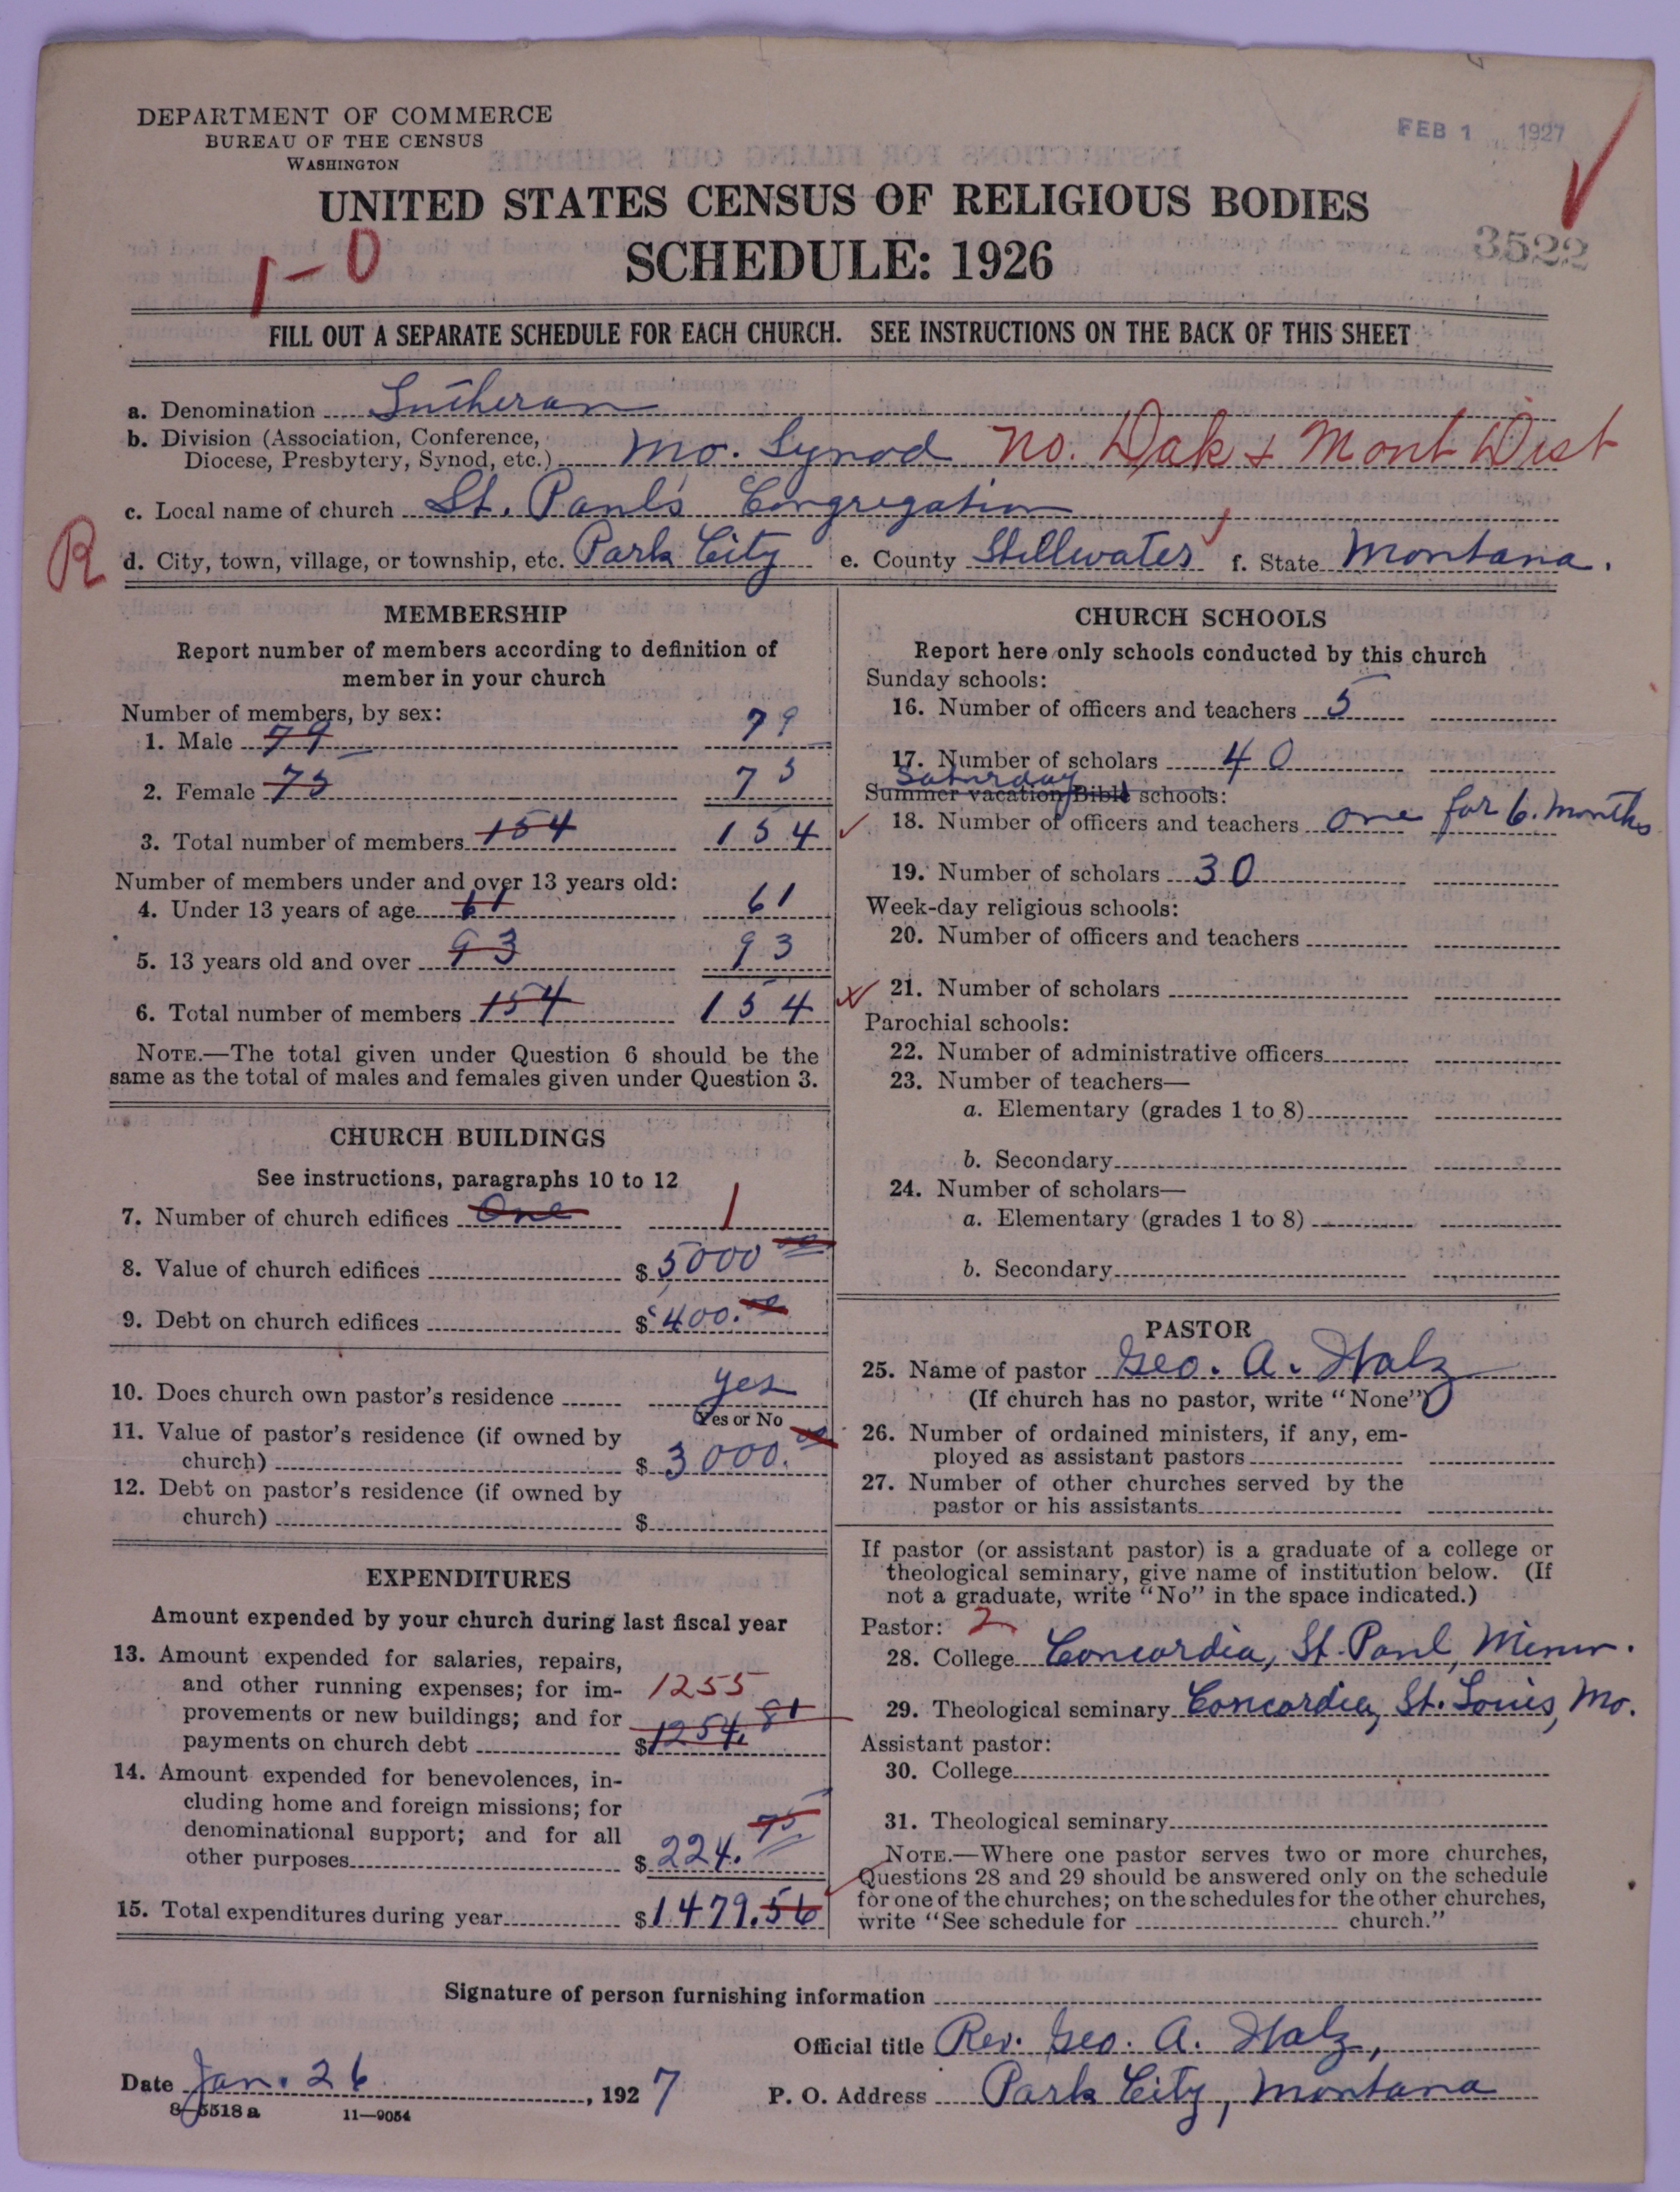 DEPARTMENT OF COMMERCE
BUREAU OF THE CENSUS
WASHINGTON
FEB 1 1927
UNITED STATES CENSUS OF RELIGIOUS BODIES
SCHEDULE: 1926
3522
1-0
FILL OUT A SEPARATE SCHEDULE FOR EACH CHURCH. SEE INSTRUCTIONS ON THE BACK OF THIS SHEET
a. Denomination Lutheran
b. Division (Association, Conference,
Diocese, Presbytery, Synod, etc.) Mo. Synod No. Dak & Mont Dist
c. Local name of church St. Paul's Congregation
R
d. City, town, village, or township, etc. Park City e. County Stillwater f. State Montana.
MEMBERSHIP
Report number of members according to definition of
member in your church
Number of members, by sex:
1. Male 79 79
2. Female 75 75
3. Total number of members 154 154
Number of members under and over 13 years old:
4. Under 13 years of age 61 61
5. 13 years old and over 93 93
6. Total number of members 154 154
NOTE.—The total given under Question 6 should be the
same as the total of males and females given under Question 3.
CHURCH BUILDINGS
See instructions, paragraphs 10 to 12
7. Number of church edifices One 1
8. Value of church edifices $ 5000 00
9. Debt on church edifices $ 400.00
10. Does church own pastor's residence yes
Yes or No
11. Value of pastor's residence (if owned by
church) $ 3000.00
12. Debt on pastor's residence (if owned by
church) $
EXPENDITURES
Amount expended by your church during last fiscal year
13. Amount expended for salaries, repairs,
and other running expenses; for im- 1255
provements or new buildings; and for
payments on church debt $ 1254.81
14. Amount expended for benevolences, in-
cluding home and foreign missions; for
denominational support; and for all
other purposes $ 224.75
15. Total expenditures during year $ 1479.56
CHURCH SCHOOLS
Report here only schools conducted by this church
Sunday schools:
16. Number of officers and teachers 5
17. Number of scholars 40
Saturday
Summer vacation Bible schools:
18. Number of officers and teachers one for 6. months
19. Number of scholars 30
Week-day religious schools:
20. Number of officers and teachers
21. Number of scholars
Parochial schools:
22. Number of administrative officers
23. Number of teachers—
a. Elementary (grades 1 to 8)
b. Secondary
24. Number of scholars—
a. Elementary (grades 1 to 8)
b. Secondary
PASTOR
25. Name of pastor Geo. A.
(If church has no pastor, write "None")
26. Number of ordained ministers, if any, em-
ployed as assistant pastors
27. Number of other churches served by the
pastor or his assistants
If pastor (or assistant pastor) is a graduate of a college or
theological seminary, give name of institution below. (If
not a graduate, write "No" in the space indicated.)
Pastor: 2
28. College Concordia, St. Paul, Minn.
29. Theological seminary Concordia, St. Louis, Mo.
Assistant pastor:
30. College
31. Theological seminary
NOTE.—Where one pastor serves two or more churches,
Questions 28 and 29 should be answered only on the schedule
for one of the churches; on the schedules for the other churches,
write "See schedule for church."
Signature of person furnishing information
Official title Rev. Geo. A.
Date Jan. 26, 1927 P. O. Address Park City, Montana
8-5518a 11-9054